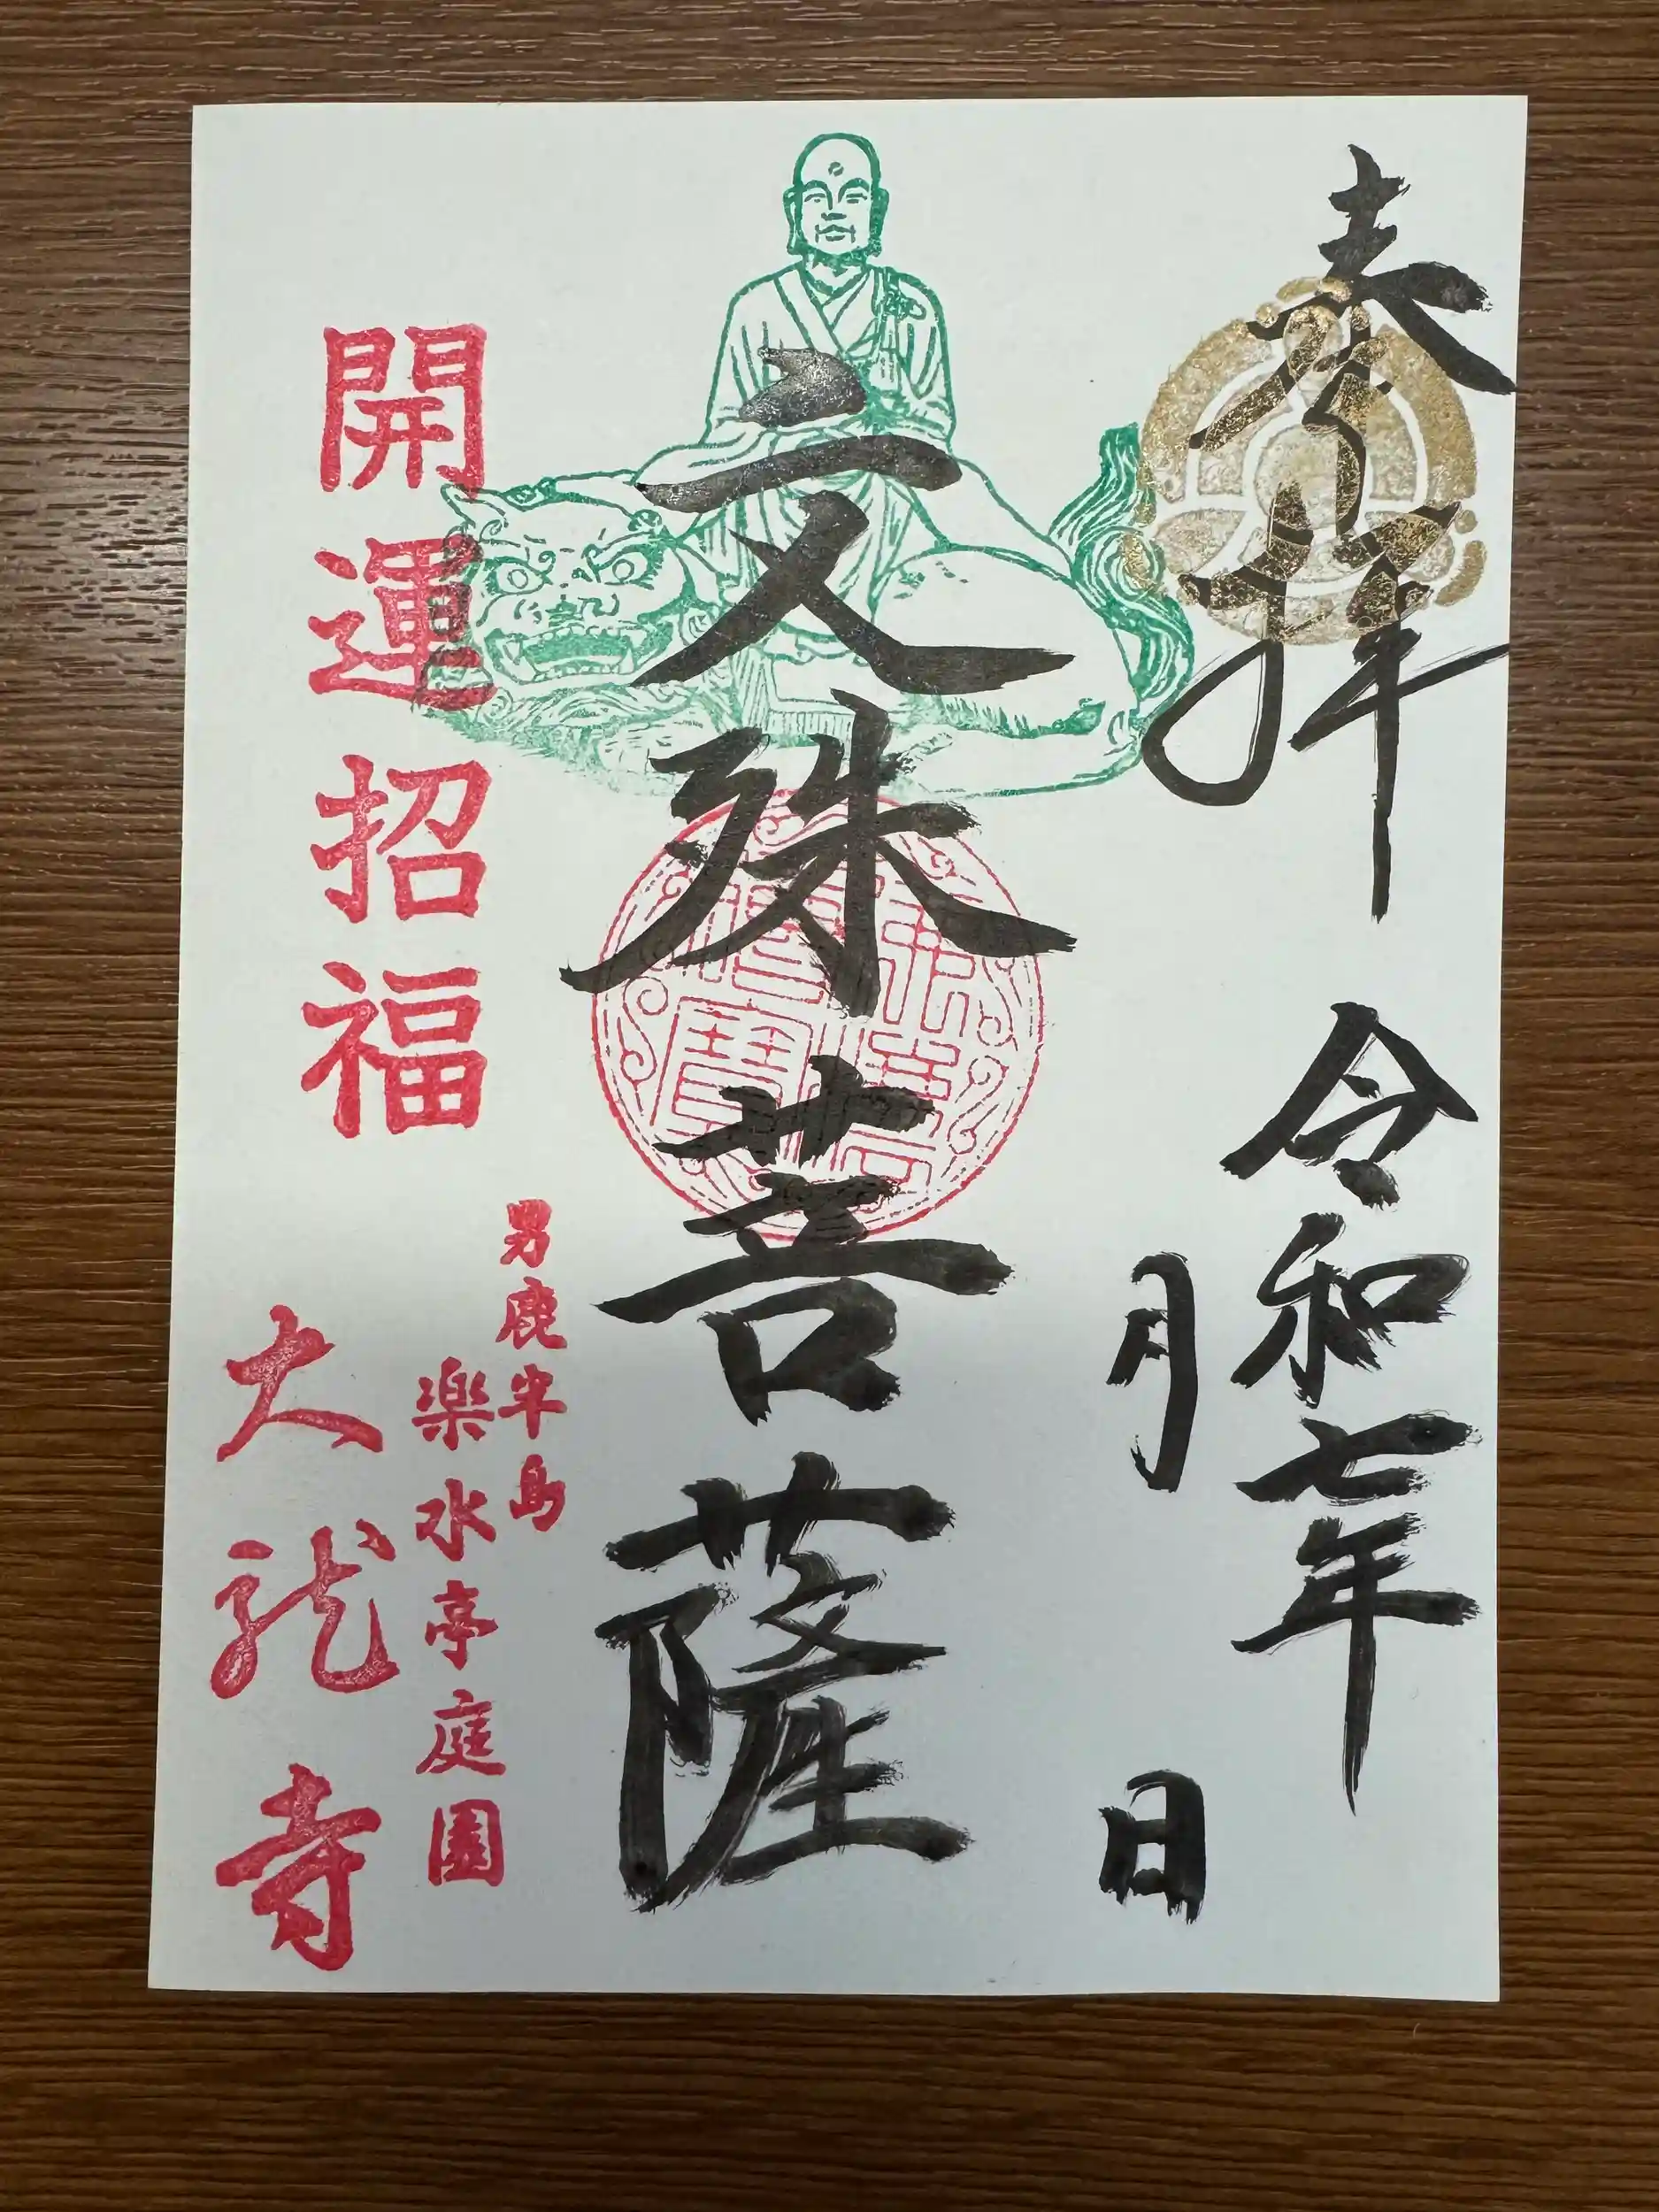 奉拝
令和七年
月　日
文殊菩薩
開運招福
男鹿半島
楽水亭庭園
大龍寺